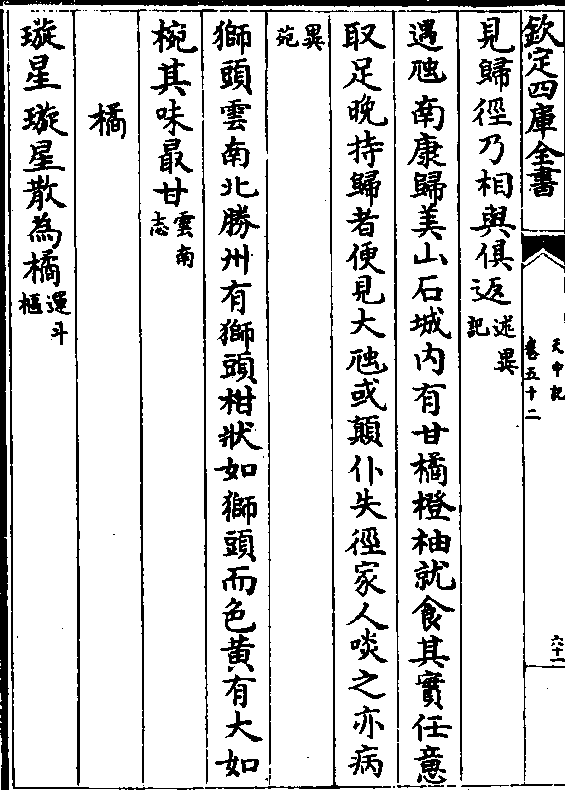 欽定四庫全書
天中記
卷五十二
六十二
見歸徑乃相與俱返述異記
遇虵南康歸美山石城内有甘橘橙柚就食其實任意
取足晚持歸者便見大虵或顛仆失徑家人啖之亦病
異苑
獅頭雲南北勝州有獅頭柑狀如獅頭而色黄有大如
椀其味最甘雲南志
橘
璇星璇星散為橘運斗樞